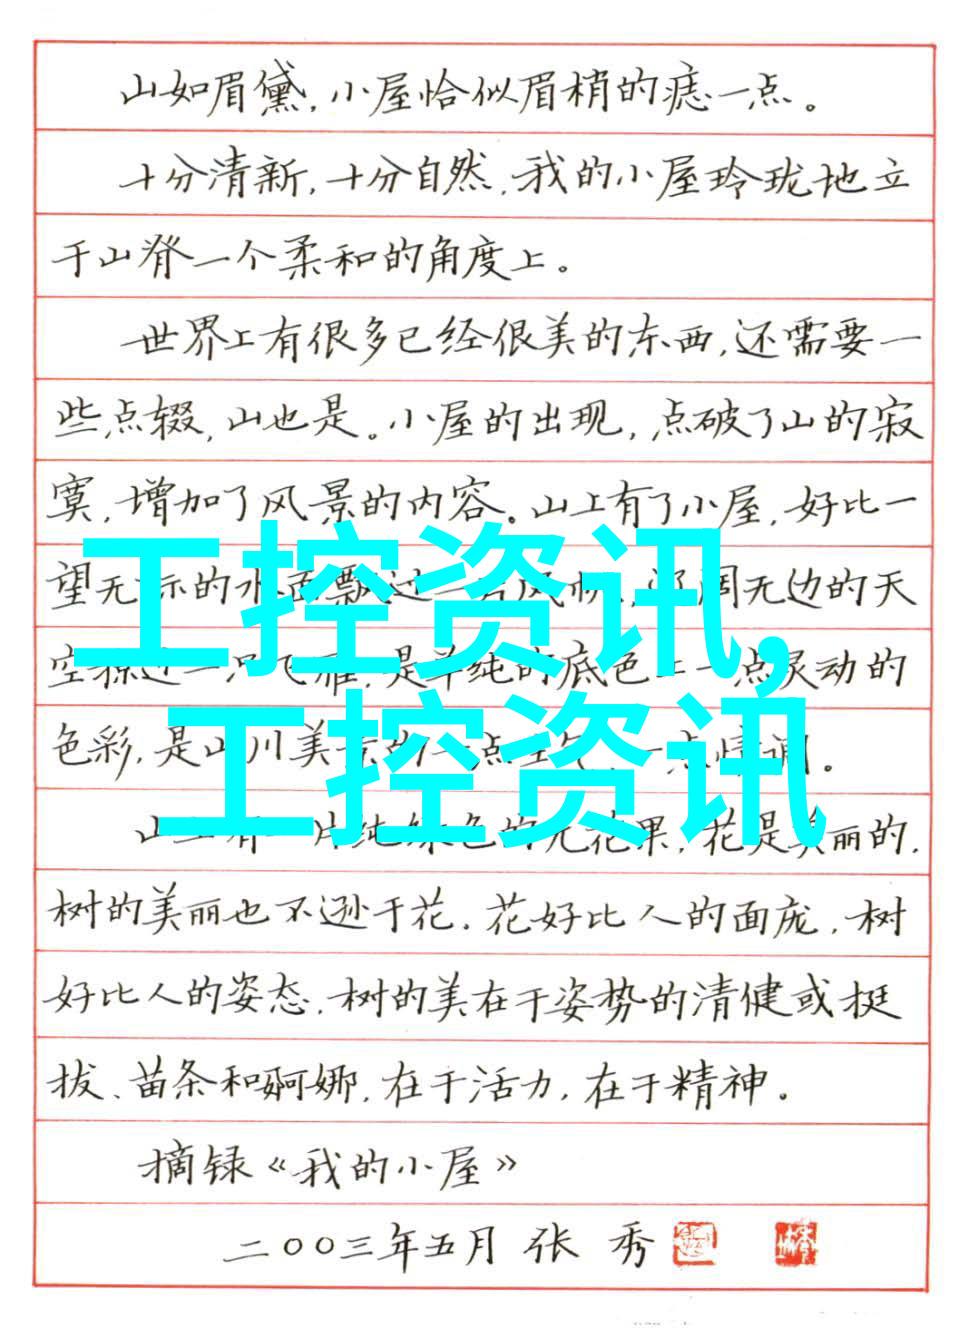 山如眉黛,小屋恰似眉梢的痣一点。
十分清新,十分自然,我的小屋玲珑地立
于山脊一个柔和的角度上。
世界上有很多已经很美的东西,还需要一
些点缀,山也是。小屋的出现,点破了山的寂
寞,增加了风景的内容。山上有了小屋,好比一
望无际的水面飘过一片风帆,辽阔无边的天
空掠过一只飞雁,是单纯的底色上一点灵动的
色彩,是山川美景的一点生气,一点情调。
工控资讯,
工控资讯
山上有一片纯绿色的无花果,花是美丽的,
树的美丽也不逊于花。花好比人的面庞,树
好比人的姿态。树的美在于姿势的清健或挺
拔、苗条和婀娜,在于活力,在于精神。
摘录《我的小屋》
二〇〇三年五月 张秀